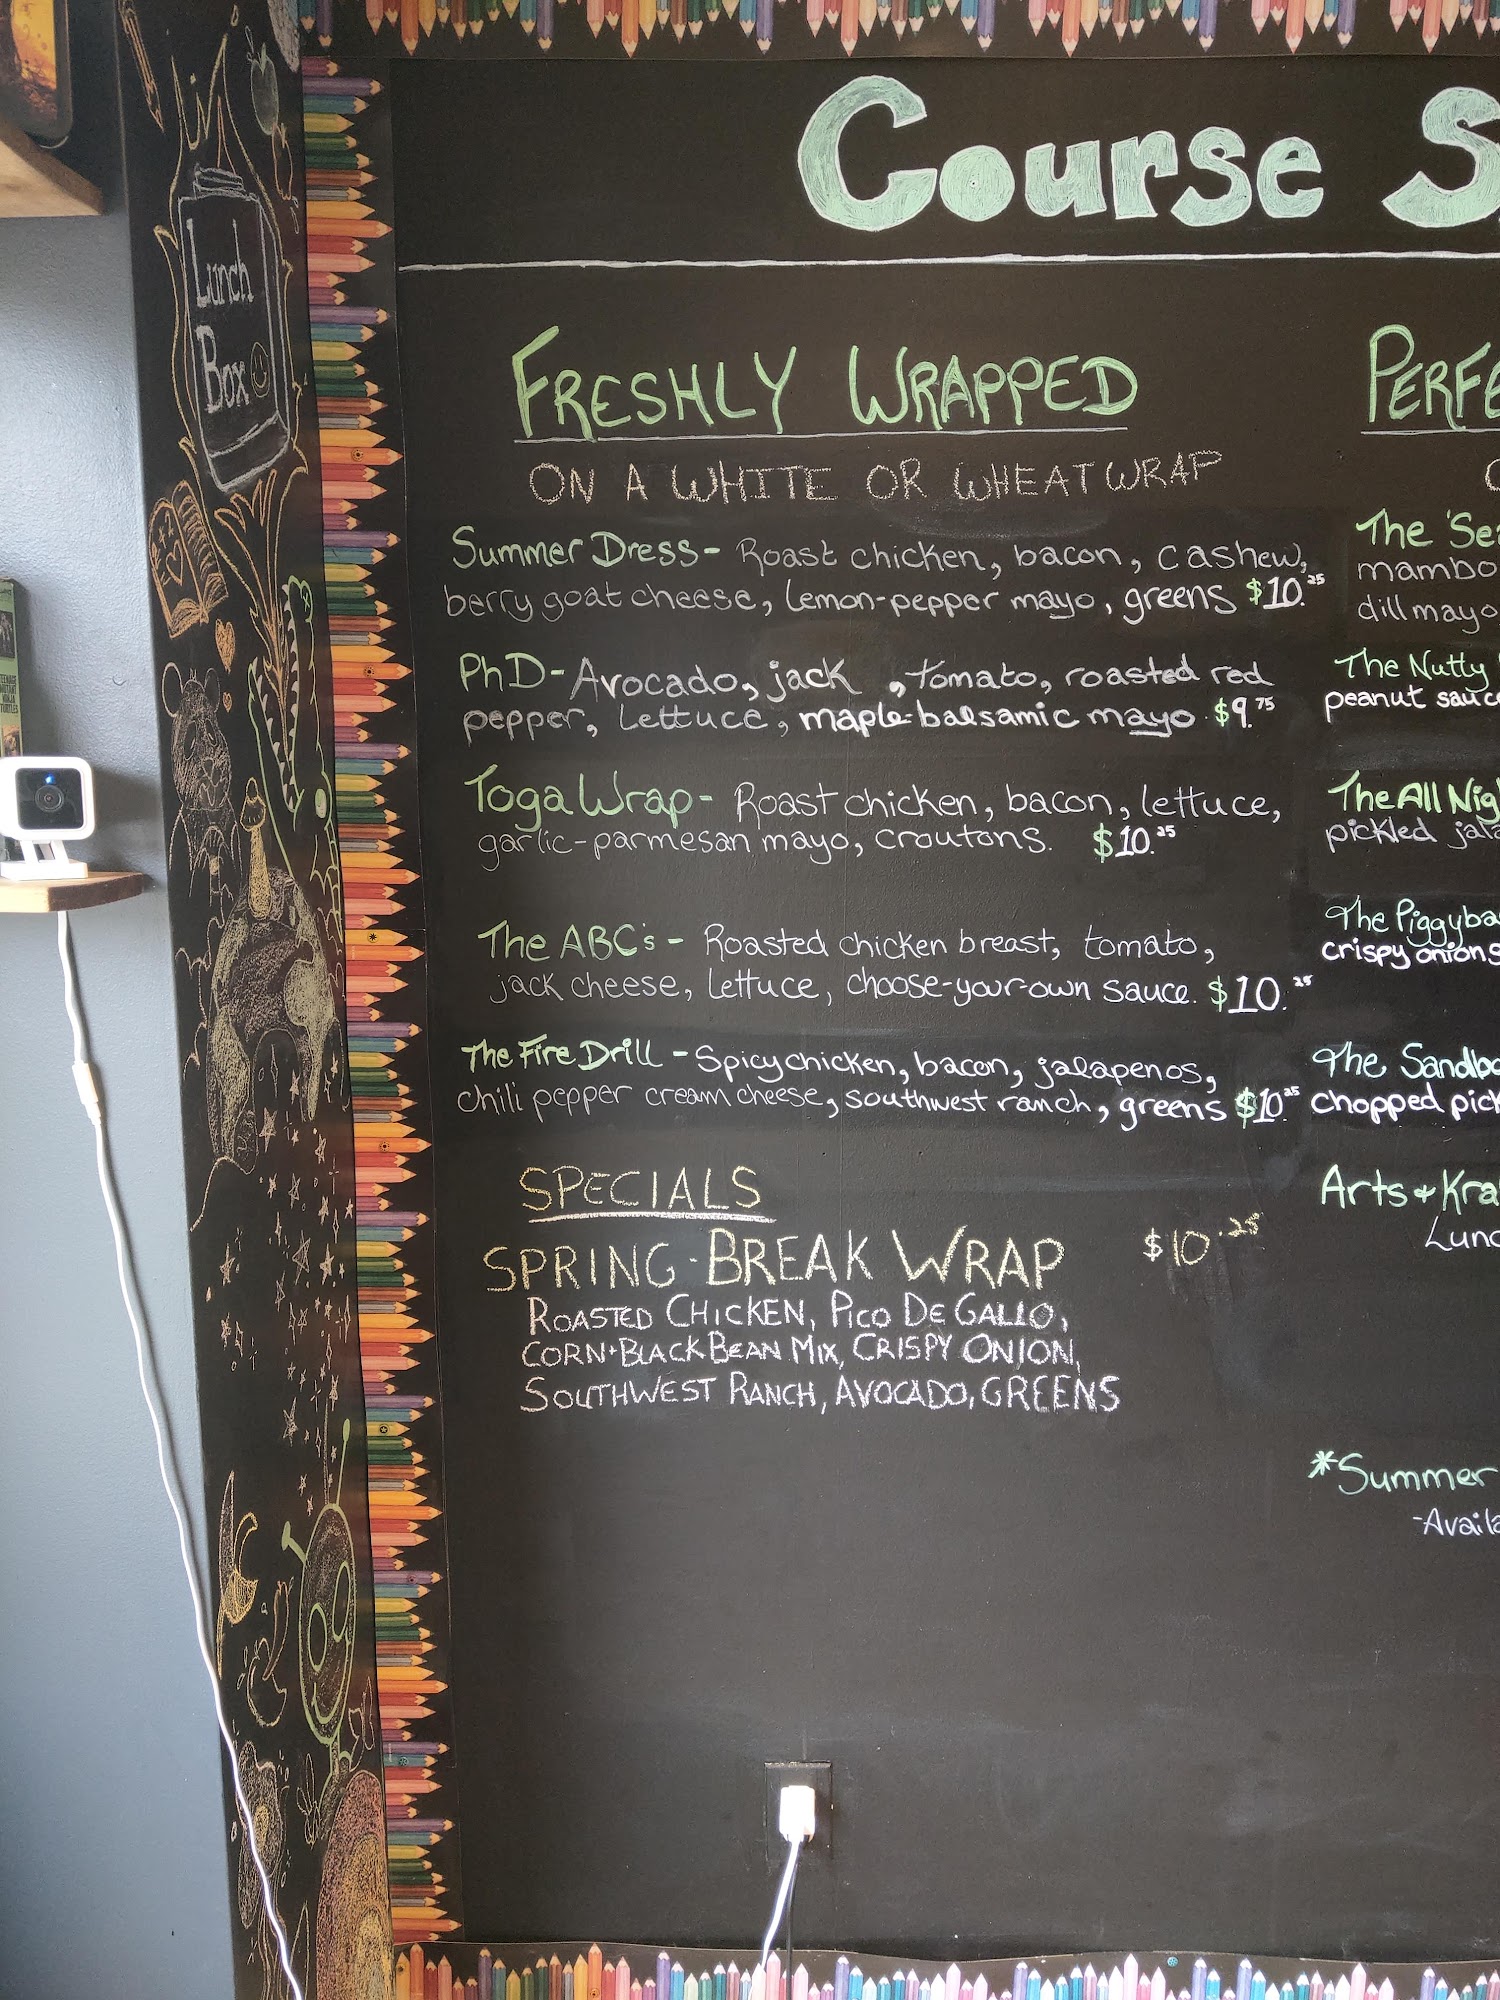 Course
Lunch
Box
FRESHLY WRAPPED
ON A WHITE OR WHEAT WRAP
Summer Dress - Roast chicken, bacon, cashew,
berry goat cheese, lemon-pepper mayo, greens $10.25
PhD - Avocado, jack , tomato, roasted red
pepper, lettuce, maple-balsamic mayo $9.75
Toga Wrap - Roast chicken, bacon, lettuce,
garlic-parmesan mayo, croutons. $10.25
The ABC's - Roasted chicken breast, tomato,
jack cheese, lettuce, choose-your-own sauce. $10.25
The Fire Drill - Spicy chicken, bacon, jalapenos,
chili pepper cream cheese, southwest ranch, greens $10.25
SPECIALS
SPRING-BREAK WRAP $10.25
ROASTED CHICKEN, PICO DE GALLO,
CORN+BLACK BEAN MIX, CRISPY ONION,
SOUTHWEST RANCH, AVOCADO, GREENS
PERFE
The 'Sea
mambo
dill mayo
The Nutty
peanut sauce
The All Nig
pickled jala
The Piggyba
crispy onions
The Sandbo
chopped pick
Arts + Kra
Lunc
*Summer
-Availa
TEENAGE
MUTANT
NINJA
TURTLES